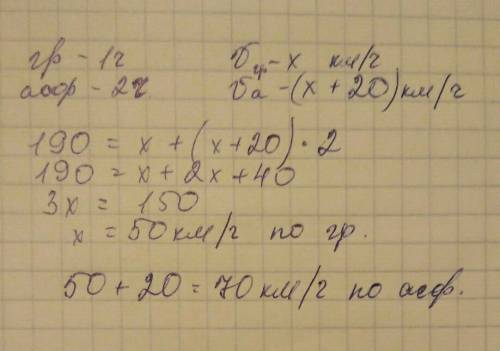 гр - 1ч
vгр - x км/ч
асф - 2ч
vа - (x + 20) км/ч
190 = x + (x+20) · 2
190 = x + 2x + 40
3x = 150
x = 50 км/ч по гр.
50 + 20 = 70 км/ч по асф.